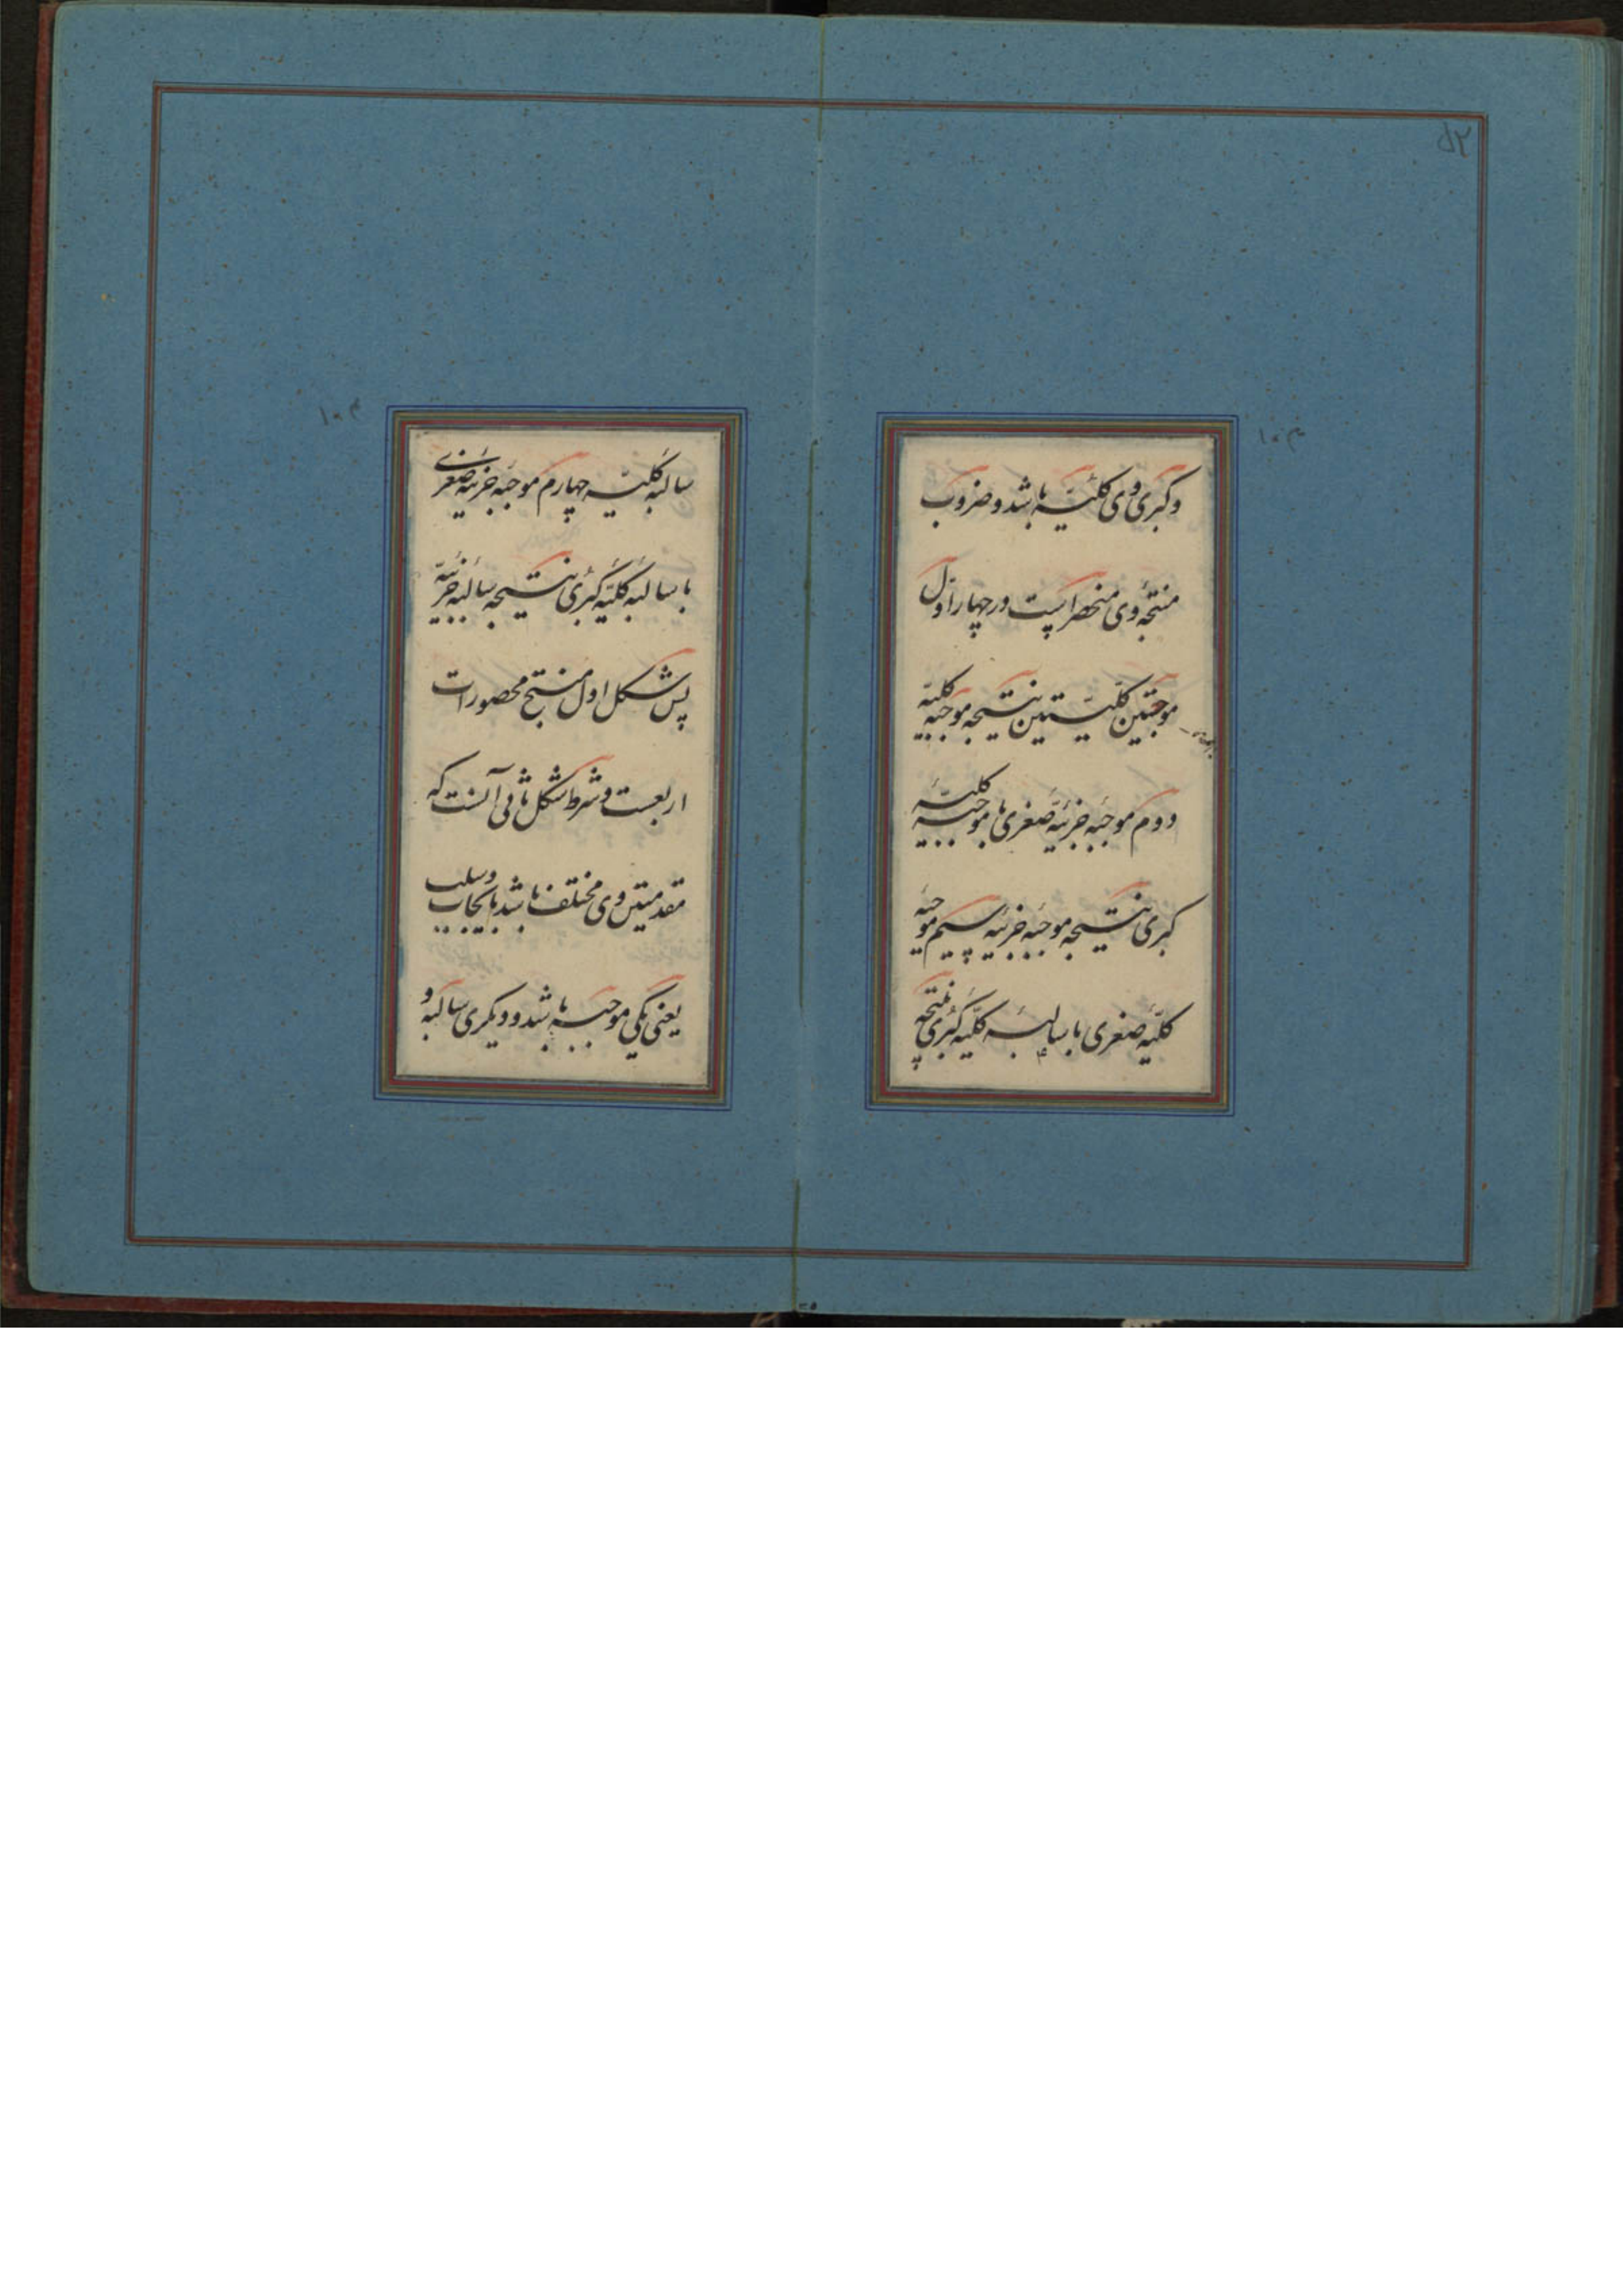 و کبری وی کلیّه باشد و ضروب
منتجهٔ وی منحصر است در چهار اوّل
موجبتین کلیّتین نتیجه موجبهٔ کلیّه
دوم موجبهٔ جزئیّه صغری با موجبهٔ کلیّهٔ
کبری نتیجه موجبهٔ جزئیه سیم موجبهٔ
کلیّه صغری با سالبهٔ کلیّه کبری نتیجه
سالبهٔ کلیّه چهارم موجبهٔ جزئیه صغری
با سالبهٔ کلیّه کبری نتیجه سالبهٔ جزئیّه
پس شکل اول منتج محصورات
اربعست و شرط شکل ثانی آنست که
مقدمتین وی مختلف باشد بایجاب و سلب
یعنی یکی موجبه باشد و دیگری سالبه و